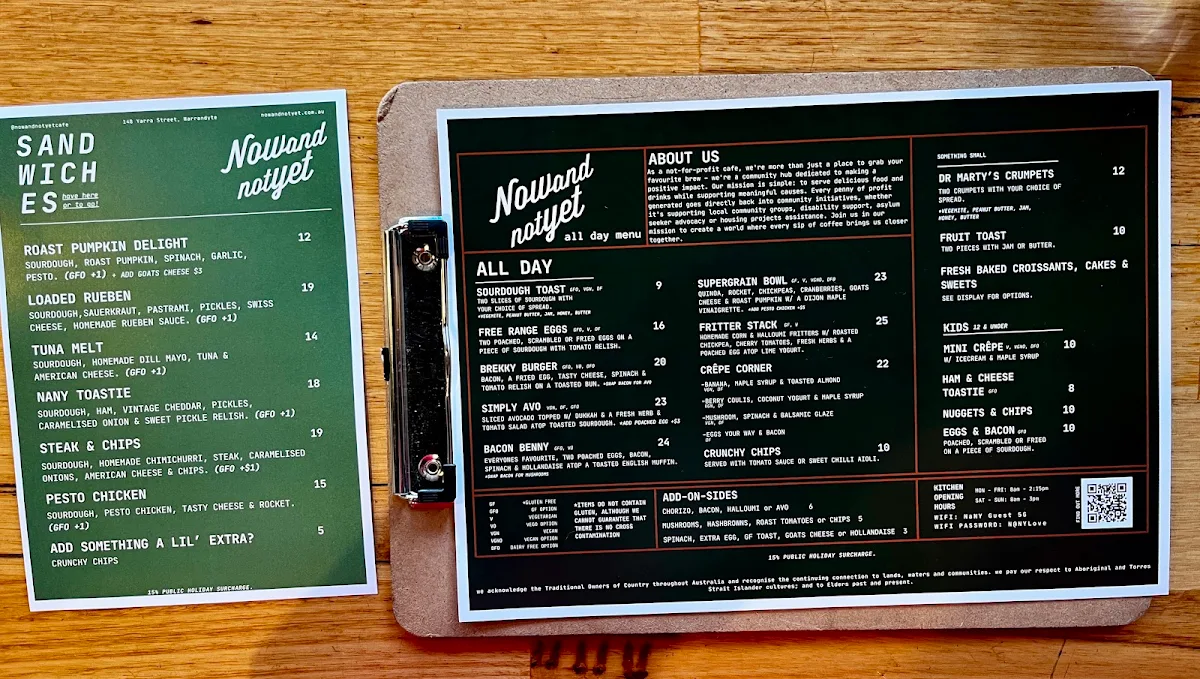 @nowandnotyetcafe
148 Yarra Street, Warrandyte
nowandnotyet.com.au
SAND
WICH
ES
have here
or to go!
Nowand
notyet
ROAST PUMPKIN DELIGHT 12
SOURDOUGH, ROAST PUMPKIN, SPINACH, GARLIC,
PESTO. (GFO +1) + ADD GOATS CHEESE $3
LOADED RUEBEN 19
SOURDOUGH,SAUERKRAUT, PASTRAMI, PICKLES, SWISS
CHEESE, HOMEMADE RUEBEN SAUCE. (GFO +1)
TUNA MELT 14
SOURDOUGH, HOMEMADE DILL MAYO, TUNA &
AMERICAN CHEESE. (GFO +1)
NANY TOASTIE 18
SOURDOUGH, HAM, VINTAGE CHEDDAR, PICKLES,
CARAMELISED ONION & SWEET PICKLE RELISH. (GFO +1)
STEAK & CHIPS 19
SOURDOUGH, HOMEMADE CHIMICHURRI, STEAK, CARAMELISED
ONIONS, AMERICAN CHEESE & CHIPS. (GFO +$1)
PESTO CHICKEN 15
SOURDOUGH, PESTO CHICKEN, TASTY CHEESE & ROCKET.
(GFO +1)
ADD SOMETHING A LIL' EXTRA? 5
CRUNCHY CHIPS
15% PUBLIC HOLIDAY SURCHARGE.
Nowand
notyet
all day menu
ABOUT US
As a not-for-profit cafe, we're more than just a place to grab your
favourite brew - we're a community hub dedicated to making a
positive impact. Our mission is simple: to serve delicious food and
drinks while supporting meaningful causes. Every penny of profit
generated goes directly back into community initiatives, whether
it's supporting local community groups, disability support, asylum
seeker advocacy or housing projects assistance. Join us in our
mission to create a world where every sip of coffee brings us closer
together.
ALL DAY
SOURDOUGH TOAST GFO, VGN, DF 9
TWO SLICES OF SOURDOUGH WITH
YOUR CHOICE OF SPREAD.
*VEGEMITE, PEANUT BUTTER, JAM, HONEY, BUTTER
FREE RANGE EGGS GFO, V, DF 16
TWO POACHED, SCRAMBLED OR FRIED EGGS ON A
PIECE OF SOURDOUGH WITH TOMATO RELISH.
BREKKY BURGER GFO, VO, DFO 20
BACON, A FRIED EGG, TASTY CHEESE, SPINACH &
TOMATO RELISH ON A TOASTED BUN. *SWAP BACON FOR AVO
SIMPLY AVO VGN, DF, GFO 23
SLICED AVOCADO TOPPED W/ DUKKAH & A FRESH HERB &
TOMATO SALAD ATOP TOASTED SOURDOUGH. *ADD POACHED EGG +$3
BACON BENNY GFO, VO 24
EVERYONES FAVOURITE, TWO POACHED EGGS, BACON,
SPINACH & HOLLANDAISE ATOP A TOASTED ENGLISH MUFFIN.
*SWAP BACON FOR MUSHROOMS
SUPERGRAIN BOWL GF, V, VGNO, DFO 23
QUINOA, ROCKET, CHICKPEAS, CRANBERRIES, GOATS
CHEESE & ROAST PUMPKIN W/ A DIJON MAPLE
VINAIGRETTE. *ADD PESTO CHICKEN +$5
FRITTER STACK GF, V 25
HOMEMADE CORN & HALLOUMI FRITTERS W/ ROASTED
CHICKPEA, CHERRY TOMATOES, FRESH HERBS & A
POACHED EGG ATOP LIME YOGURT.
CRÊPE CORNER 22
-BANANA, MAPLE SYRUP & TOASTED ALMOND
VGN, DF
-BERRY COULIS, COCONUT YOGURT & MAPLE SYRUP
VGN, DF
-MUSHROOM, SPINACH & BALSAMIC GLAZE
VGN, DF
-EGGS YOUR WAY & BACON
DF
CRUNCHY CHIPS 10
SERVED WITH TOMATO SAUCE OR SWEET CHILLI AIOLI.
SOMETHING SMALL
DR MARTY'S CRUMPETS 12
TWO CRUMPETS WITH YOUR CHOICE OF
SPREAD.
*VEGEMITE, PEANUT BUTTER, JAM,
HONEY, BUTTER
FRUIT TOAST 10
TWO PIECES WITH JAM OR BUTTER.
FRESH BAKED CROISSANTS, CAKES &
SWEETS
SEE DISPLAY FOR OPTIONS.
KIDS 12 & UNDER
MINI CRÊPE V, VGNO, DFO 10
W/ ICECREAM & MAPLE SYRUP
HAM & CHEESE
TOASTIE GFO 8
NUGGETS & CHIPS 10
EGGS & BACON GFO 10
POACHED, SCRAMBLED OR FRIED
ON A PIECE OF SOURDOUGH.
GF *GLUTEN FREE
GFO GF OPTION
V VEGETARIAN
VO VEGO OPTION
VGN VEGAN
VGNO VEGAN OPTION
DFO DAIRY FREE OPTION
*ITEMS DO NOT CONTAIN
GLUTEN, ALTHOUGH WE
CANNOT GUARANTEE THAT
THERE IS NO CROSS
CONTAMINATION
ADD-ON-SIDES
CHORIZO, BACON, HALLOUMI or AVO 6
MUSHROOMS, HASHBROWNS, ROAST TOMATOES or CHIPS 5
SPINACH, EXTRA EGG, GF TOAST, GOATS CHEESE or HOLLANDAISE 3
KITCHEN
OPENING
HOURS
MON - FRI: 8am - 2:15pm
SAT - SUN: 8am - 3pm
WIFI: NaNY Guest 5G
WIFI PASSWORD: N@NYLove
FIND OUT MORE
15% PUBLIC HOLIDAY SURCHARGE.
we acknowledge the Traditional Owners of Country throughout Australia and recognise the continuing connection to lands, waters and communities. we pay our respect to Aboriginal and Torres
Strait Islander cultures; and to Elders past and present.